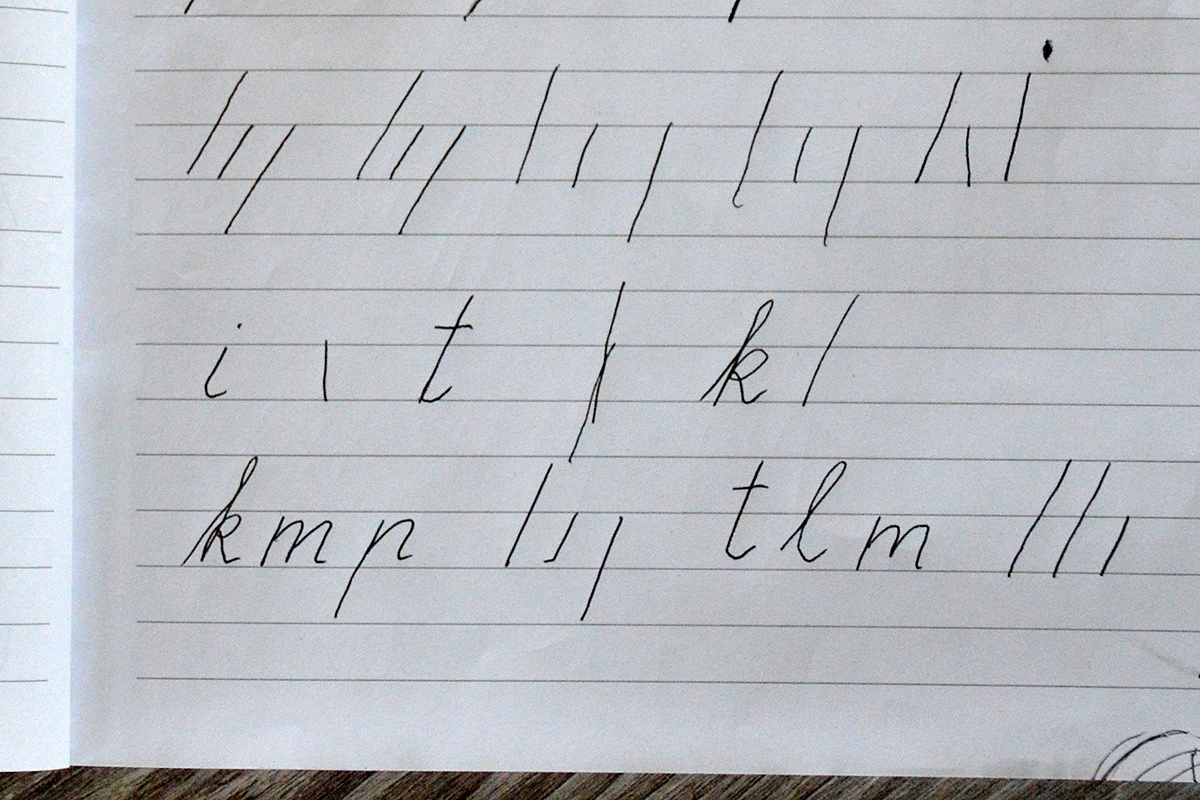 i t k
kmp tlm